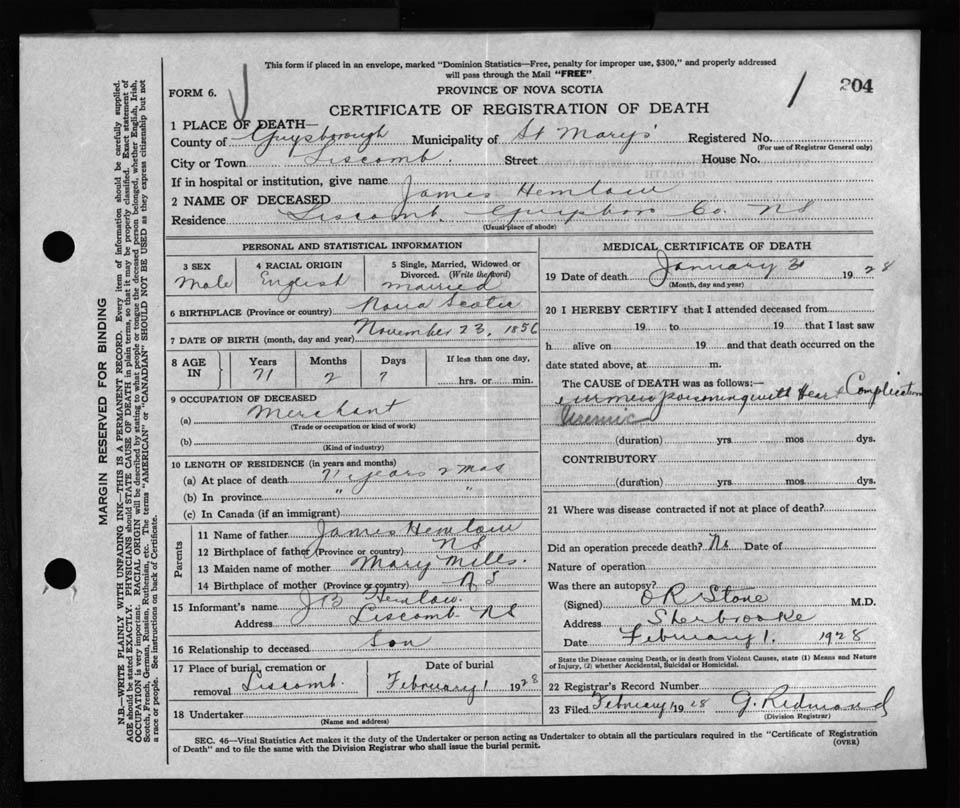 This form if placed in an envelope, marked "Dominion Statistics—Free, penalty for improper use, $300," and properly addressed
will pass through the Mail "FREE"
FORM 6.
PROVINCE OF NOVA SCOTIA
204
CERTIFICATE OF REGISTRATION OF DEATH
1 PLACE OF DEATH—
County of Guysborough Municipality of St Mary's Registered No.
(For use of Registrar General only)
City or Town Liscomb. Street House No.
If in hospital or institution, give name
2 NAME OF DECEASED James Hemlow
Residence Liscomb. Guysboro Co. NS
(Usual place of abode)
PERSONAL AND STATISTICAL INFORMATION
3 SEX 4 RACIAL ORIGIN 5 Single, Married, Widowed or
Divorced. (Write the word)
Male English married
6 BIRTHPLACE (Province or country) Nova Scotia
7 DATE OF BIRTH (month, day and year) November 23, 1856
8 AGE IN Years Months Days If less than one day,
71 2 7 hrs. or min.
9 OCCUPATION OF DECEASED
(a) Merchant
(Trade or occupation or kind of work)
(b)
(Kind of industry)
10 LENGTH OF RESIDENCE (in years and months)
(a) At place of death 71 years 2 mos
(b) In province " "
(c) In Canada (if an immigrant)
Parents
11 Name of father James Hemlow
12 Birthplace of father (Province or country) NS
13 Maiden name of mother Mary Mills.
14 Birthplace of mother (Province or country) NS
15 Informant's name J B Hemlow.
Address Liscomb NS
16 Relationship to deceased Son
17 Place of burial, cremation or Date of burial
removal Liscomb. February 1 1928
18 Undertaker
(Name and address)
MEDICAL CERTIFICATE OF DEATH
19 Date of death January 1928
(Month, day and year)
20 I HEREBY CERTIFY that I attended deceased from
19 to 19 that I last saw
h alive on 19 and that death occurred on the
date stated above, at m.
The CAUSE of DEATH was as follows:—
poisoning with Heart Complication
Uremic
(duration) yrs mos dys.
CONTRIBUTORY
(duration) yrs mos dys.
21 Where was disease contracted if not at place of death?
Did an operation precede death? No Date of
Nature of operation
Was there an autopsy?
(Signed) O R Stone M.D.
Address Sherbrooke
Date February 1. 1928
State the Disease causing Death, or in death from Violent Causes, state (1) Means and Nature
of Injury, (2) whether Accidental, Suicidal or Homicidal.
22 Registrar's Record Number
23 Filed February 1928 G. Redmond
(Division Registrar)
SEC. 46—Vital Statistics Act makes it the duty of the Undertaker or person acting as Undertaker to obtain all the particulars required in the "Certificate of Registration
of Death" and to file the same with the Division Registrar who shall issue the burial permit.
(OVER)
MARGIN RESERVED FOR BINDING
N.B.—WRITE PLAINLY WITH UNFADING INK—THIS IS A PERMANENT RECORD. Every item of information should be carefully supplied.
AGE should be stated EXACTLY. PHYSICIANS should STATE CAUSE OF DEATH in plain terms, so that it may be properly classified. Exact statement of
OCCUPATION is very important. RACIAL ORIGIN will be described by stating to what people or tongue the deceased person belonged, whether English, Irish,
Scotch, French, German, Russian, Ruthenian, etc. The terms "AMERICAN" or "CANADIAN" SHOULD NOT BE USED as they express citizenship but not
a race or people. See instructions on back of Certificate.